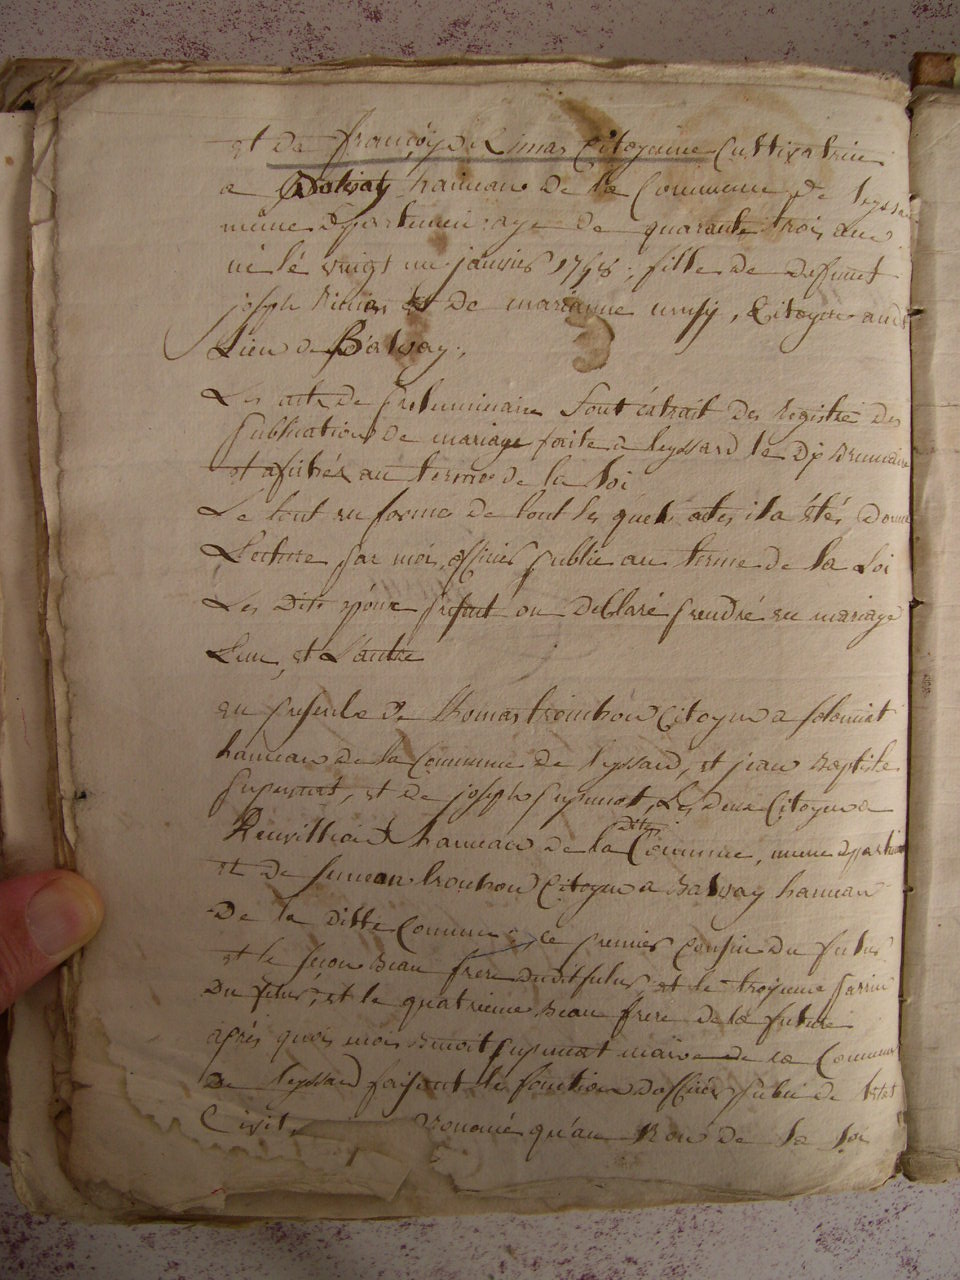 et de françoise Rimas Citoyenne Cultivatrice
a Balvay hameau de la Commune de leyssard
même département agé de quarante trois ans
né lé vingt un janvier 1748, fille de deffunct
joseph Rimas et de marianne , Citoyen audit
Lieu de Balvay,
Les acte de preluminaire Sont éxtrait des Registre des
publication de mariage faite a leyssard le Brumaire
et afichéz au terme de la loi
Le tout en forme de tout les quels actes il a étés donné
Lecture par moi officier publie au terme de la Loi
Les dits épóux préfait on déclaré prendré en mariage
Lun, et Lautre
en presence de thomas trombon Citoyen a solomiat
hameau de la Commune de leyssard, et jean Baptiste
, et de joseph , Les deux Citoyen a
hameau de la ditte Commune, meme departem
et de simeon trombon Citoyen a Balvay hameau
De la ditte Commune, le premier Cousin du futur
et le segon Beau frere dudit futur, et le troisieme parrin
Du futur, et le quatrieme Beau frere de la future
aprés quoi moi Benoit maire de la Commune
De leyssard faisant les fonction dofficier publie de letat
Civil, prononcé qu'au Non de la loi